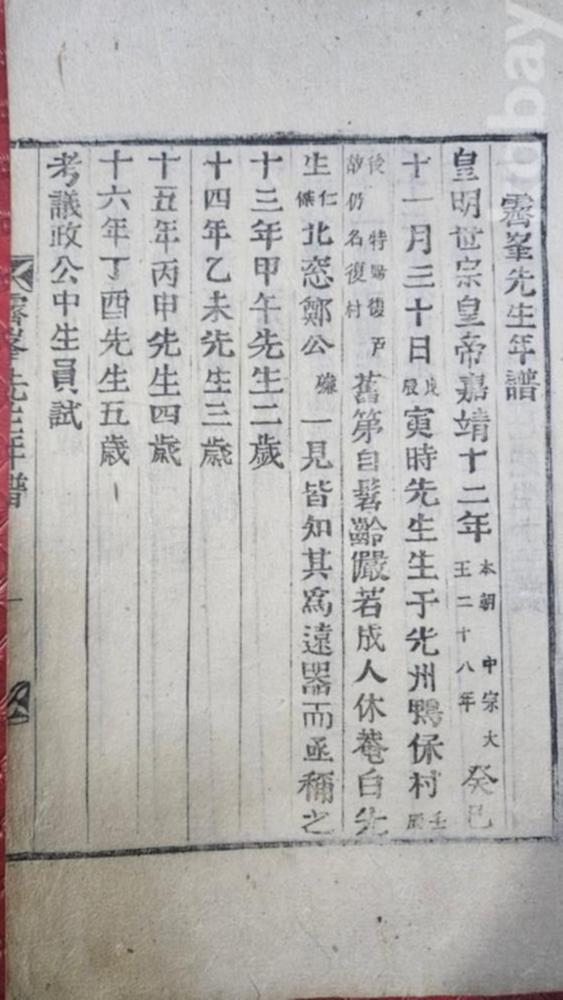 霽峯先生年譜
皇明世宗皇帝嘉靖十二年 本朝 中宗大王二十八年 癸巳
十一月三十日 戊辰 寅時先生生于光州鴨保村 壬辰
後 特賜復戶故仍名復村 舊第自髫齡嚴若成人休菴白先
生 仁傑 北窓鄭公 𥖝 一見皆知其爲遠器而亟稱之
十三年甲午先生二歲
十四年乙未先生三歲
十五年丙申先生四歲
十六年丁酉先生五歲
考議政公中生員試
霽峯先生年譜 一
bbay